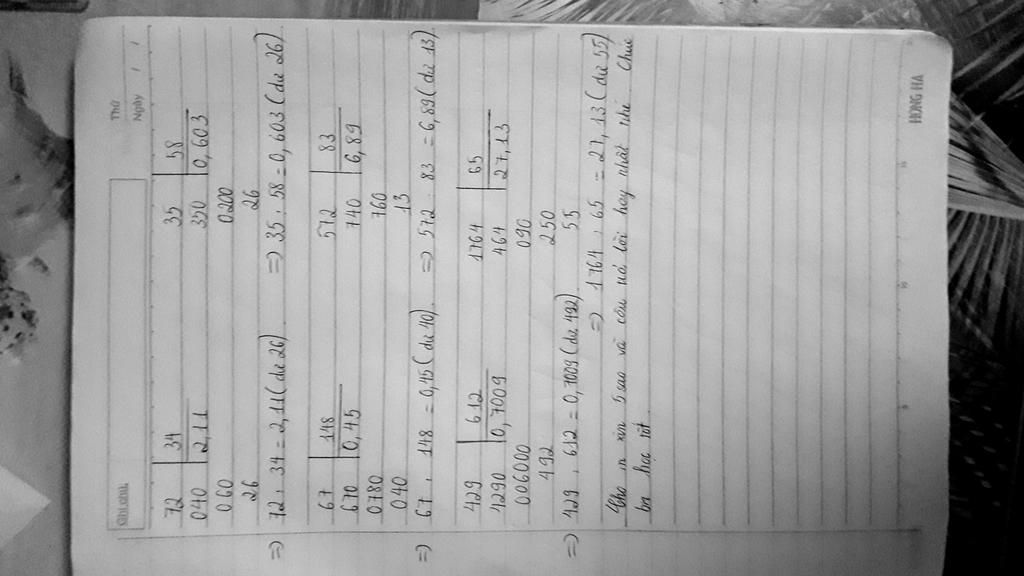 Thứ
Ngày / /
Ghi chú:
72 34 35 58
040 2,11 350 0,603
060 0200
26 26
=) 72 : 34 = 2,11 (dư 26) =) 35 : 58 = 0,603 (dư 26)
67 148 572 83
670 0,45 740 6,89
0780 760
040 13
=) 67 : 148 = 0,45 (dư 40) =) 572 : 83 = 6,89 (dư 13)
429 612 1764 65
4290 0,7009 464 27,13
006000 090
492 250
55
=) 429 : 612 = 0,7009 (dư 492)
=) 1764 : 65 = 27,13 (dư 55)
Cho m xin 5 sao và câu trả lời hay nhất nhé Chúc
bn học tốt
HONG HA